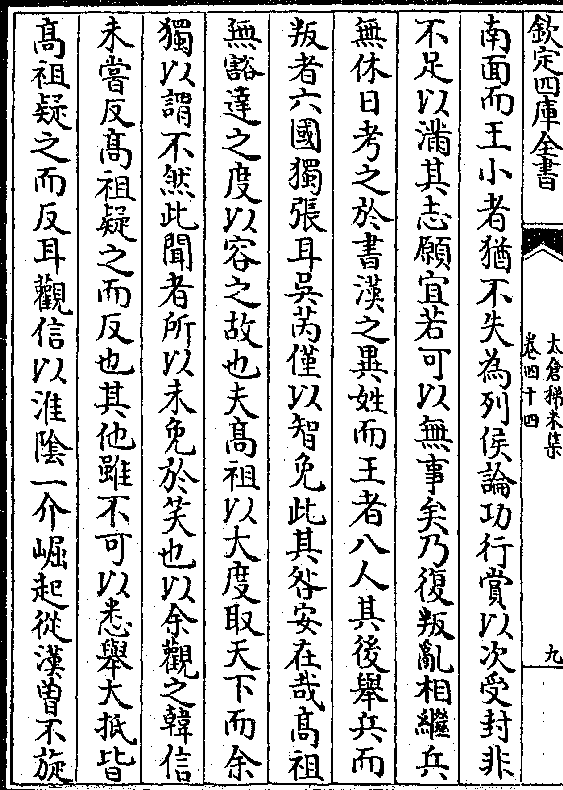 欽定四庫全書
太倉稊米集
卷四十四
九
南面而王小者猶不失為列侯論功行賞以次受封非
不足以滿其志願宜若可以無事矣乃復叛亂相繼兵
無休日考之於書漢之異姓而王者八人其後舉兵而
叛者六國獨張耳吳芮僅以智免此其咎安在哉髙祖
無豁達之度以容之故也夫髙祖以大度取天下而余
獨以謂不然此聞者所以未免於笑也以余觀之韓信
未嘗反髙祖疑之而反也其他雖不可以悉舉大抵皆
髙祖疑之而反耳觀信以淮隂一介崛起從漢曽不旋